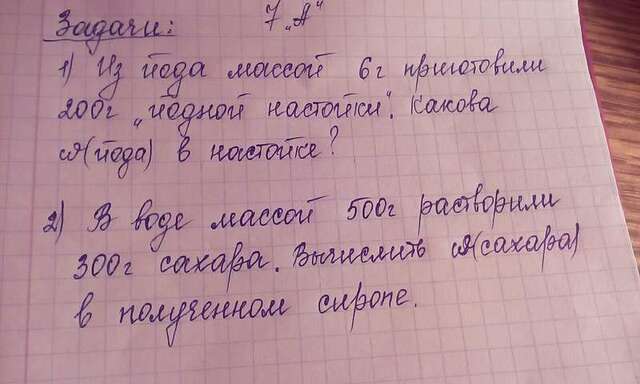 Задачи: 7 „А“
1) Из йода массой 6г приготовили
200г „йодной настойки“. Какова
ω(йода) в настойке?
2) В воде массой 500г растворили
300г сахара. Вычислить ω(сахара)
в полученном сиропе.